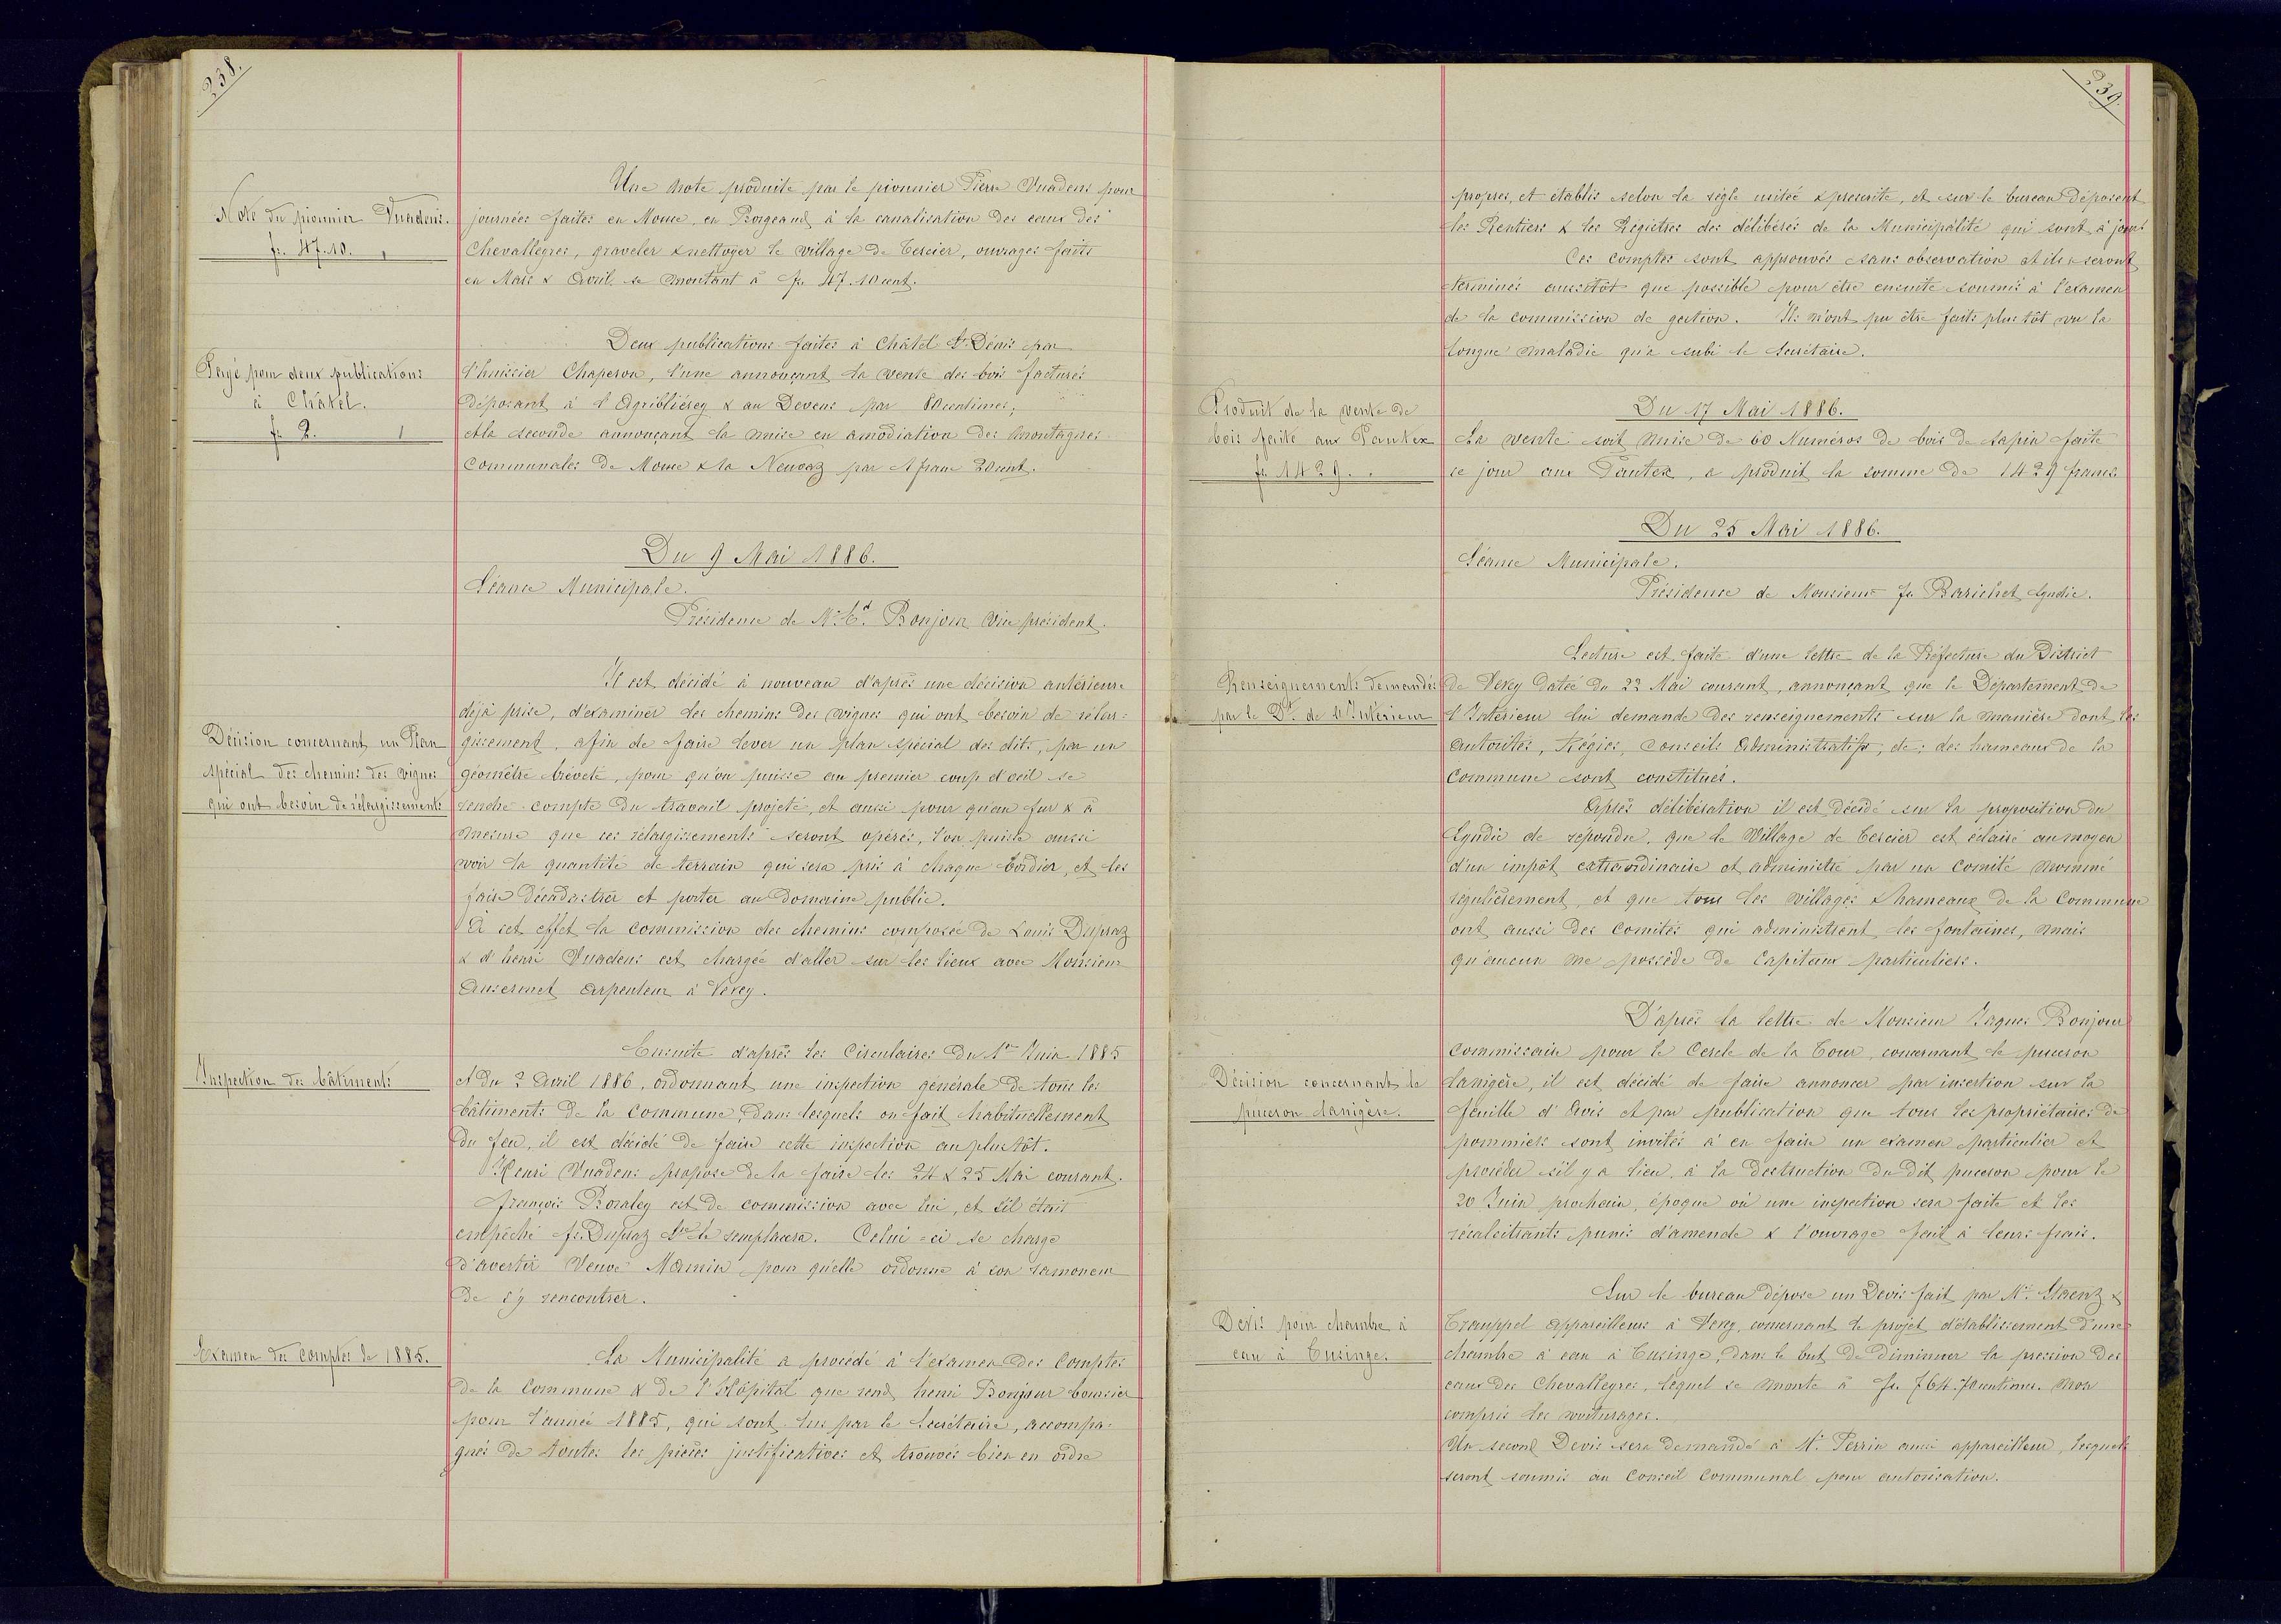 238.
Note du pionnier Vuadens.
fr. 47.10.
Une note produite par le pionnier Pierre Vuadens pour
journées faites en Mouce en Borgeaud à la canalisation des eaux des
Chevalleyres, graveler & nettoyer le village de Tercier, ouvrages faits
en Mars & Avril se montant à fr. 47.10 cent.
Payé pour deux publications
à Châtel.
fr. 2.
Deux publications faites à Châtel St. Dénis par
l'huissier Chaperon, l'une annonçant la vente des bois facturés
déposant à l'Agribliérey & au Devens par 80 centimes;
et la seconde annonçant la mise en amodiation des Montagnes
Communales de Mouce & la Neuvaz par 1 franc 20 cent.
Du 9 Mai 1886.
Séance Municipale.
Présidence de Mr. Cd. Bonjour Vice président.
Décision concernant un Plan
spécial des chemins des vignes
qui ont besoin de rélargissements
Il est décidé à nouveau d'après une décision antérieure
déjà prise, d'examiner les chemins des vignes qui ont besoin de rélar=
gissement, afin de faire lever un plan spécial des dits, par un
géomètre bréveté, pour qu'on puisse au premier coup d'oeil se
rendre compte du travail projeté, et aussi pour qu'au fur & à
mesure que ces rélargissements seront opérés, l'on puisse aussi
voir la quantité de terrain qui sera pris à chaque bordier, et les
faire décadastrer et porter au Domaine public.
A cet effet la commission des chemins composée de Louis Dupraz
& d'henri Vuadens est chargée d'aller sur les lieux avec Monsieur
Ansermet Arpenteur à Vevey.
Inspection des bâtiments
Ensuite d'après les Circulaires du 1er Juin 1885
et du 2 Avril 1886, ordonnant une inspection générale de tous les
bâtiments de la Commune, dans lesquels on fait habituellement
du feu, il est décidé de faire cette inspection au plus tôt.
Henri Vuadens propose de la faire les 24 & 25 Mai courant.
François Boraley est de commission avec lui, et s'il était
empêché fs. Dupraz le remplacera. Celui=ci se charge
d'avertir Veuve Mamin pour qu'elle ordonne à son ramoneur
de s'y rencontrer.
Examen des Comptes de 1885.
La Municipalité a procédé à l'examen des Comptes
de la Commune & de l'Hôpital que rend henri Bonjour boursier
pour l'année 1885, qui sont lus par le Secrétaire, accompa=
gnés de toutes les pièces justificatives et trouvés bien en ordre
239.
propres, et établis selon la règle usitée & prescrite, et sur le bureau déposent
les Rentiers & les Régistres des délibérés de la Municipalité qui sont à jour.
Ces comptes sont approuvés sans observation et ils seront
terminés aussitôt que possible pour être ensuite soumis à l'examen
de la commission de gestion. Ils n'ont pu être faits plus tôt vu la
longue maladie qu'a subi le Secrétaire.
Produit de la vente de
bois faite aux Pautex
fr. 1429.
Du 17 Mai 1886.
La vente soit mise de 60 Numéros de bois de sapin faite
ce jour aux Pautex, a produit la somme de 1429 francs.
Du 25 Mai 1886.
Séance Municipale.
Présidence de Monsieur fs. Barichet Syndic.
Renseignements demandés
par le Dt. de l'Intérieur
Lecture est faite d'une lettre de la Préfecture du District
de Vevey datée du 22 Mai courant, annonçant que le Département de
l'Intérieur lui demande des renseignements sur la manière dont les
autorités, Régies, Conseils Administratifs, etc: des hameaux de la
Commune sont constitués.
Après délibération il est décidé sur la proposition du
Syndic de répondre, que le Village de Tercier est éclairé au moyen
d'un impôt extraordinaire et administré par un Comité nommé
régulièrement, et que tous les villages & hameaux de la Commune
ont aussi des Comités qui administrent les fontaines, mais
qu'aucun ne possède de Capitaux particuliers.
Décision concernant le
puceron lanigère.
D'après la lettre de Monsieur Jaques Bonjour
Commissaire pour le Cercle de la Tour, concernant le puceron
lanigère, il est décidé de faire annoncer par insertion sur la
feuille d'Avis et par publication que tous les propriétaires de
pommiers sont invités à en faire un examen particulier et
procéder s'il y a lieu, à la destruction du dit puceron pour le
20 Juin prochain, époque où une inspection sera faite et les
récalcitrants punis d'amende & l'ouvrage fait à leurs frais.
Devis pour chambre à
eau à Tusinge.
Sur le bureau dépose un Devis fait par Mr. Kaenz &
Trauppel Appareilleurs à Vevey, concernant le projet d'établissement d'une
chambre à eau à Tusinge, dans le but de diminuer la pression des
eaux des Chevalleyres, lequel se monte à fr. 764.70 centimes. Non
compris les voiturages.
Un second Devis sera demandé à Mr. Perrin aussi appareilleur, lesquels
seront soumis au Conseil Communal pour autorisation.